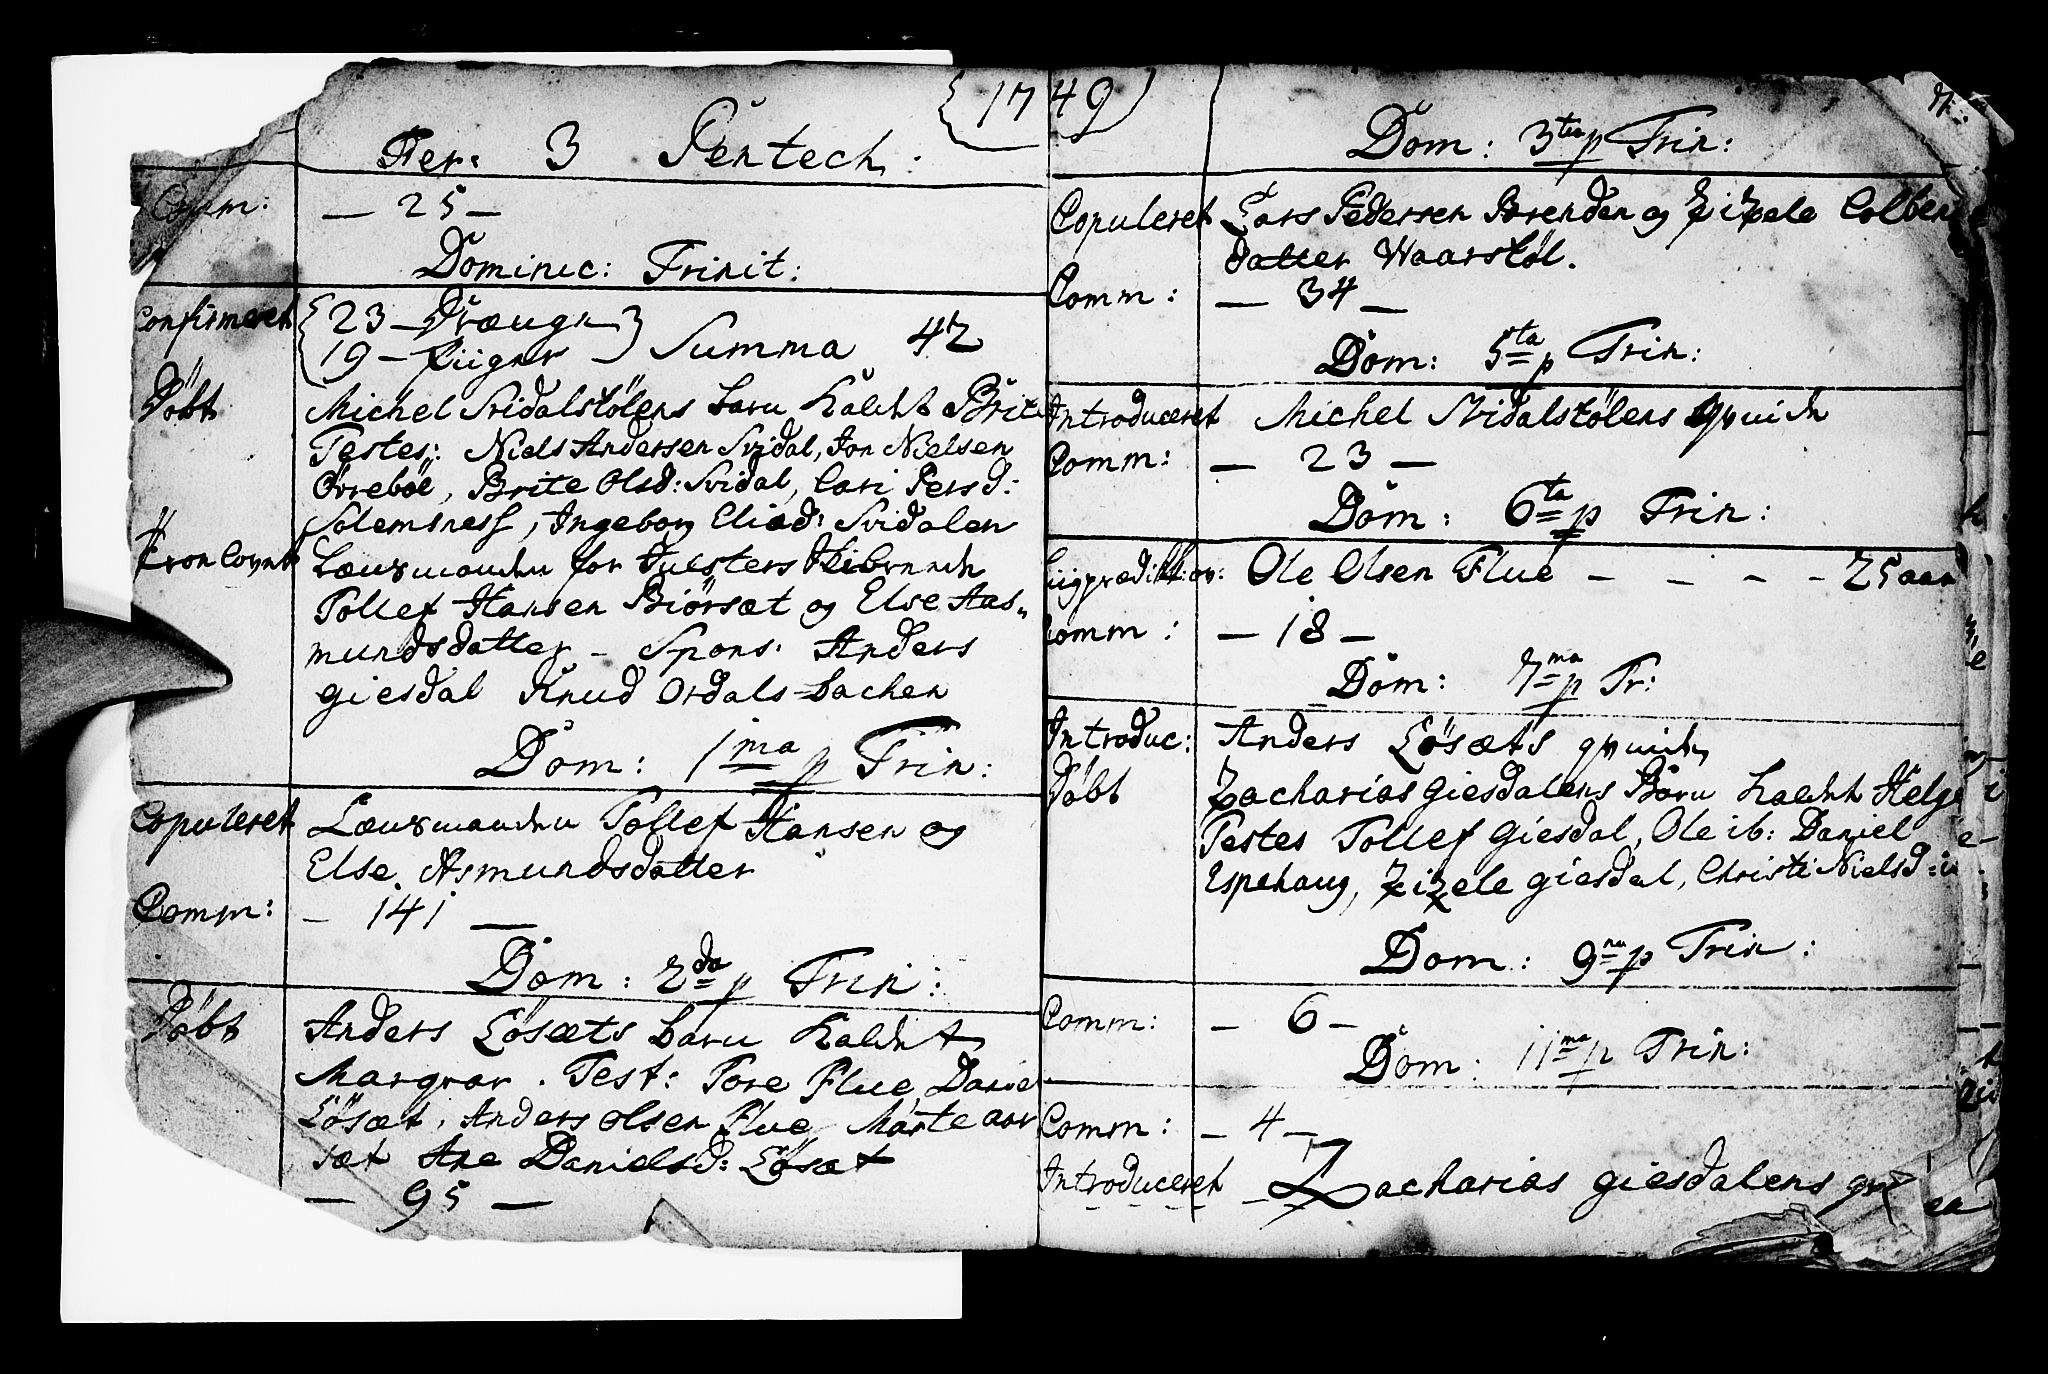 {1749}
Fer: 3 Pentech:
Comm: — 25 —
Dominic: Trinit:
Confirmeret {23 — Drænge} Summa 42
{19 — Piiger
Döbt Michel Svidalstölens barn kaldet Brite
Testes: Niels Andersen Svidal, Jon Nielsen
Örreböe, Brite Olsd: Svidal, Cari Persd:
Solemsness, Ingeborg Eliæd: Svidalen
Trolovet Lensmanden for Justers
Tollef Hansen Biörsæt og Else Aas-
mundsdatter — Spons: Anders
Giesdal Knud Ordals-backen
Dom: 1ma p Trin:
Copuleret Lensmanden Tollef Hansen og
Else Asmundsdatter
Comm: — 141 —
Dom: 2da p Trin:
Döbt Anders Lösæts barn kaldet
Margrær. Test: Tore Flue, Daniel
Lösæt, Anders Olsen Flue, Marte Aar
sæt Ane Danielsd: Lösæt
— 95 —
Dom: 3tia p Trin:
Copuleret Lars Pedersen Brenden og Zizele Colbens
datter Waarstöl.
Comm: — 34 —
Dom: 5ta p Trin:
Introduceret Michel Svidalstölens qvinde
Comm: — 23 —
Dom: 6ta p Trin:
Liigprædik: ov: Ole Olsen Flue — — — — 25 aar
Comm: — 18 —
Dom: 7ma p Tr:
Introduc: Anders Lösæts qvinde
Döbt Zacharias Giesdalens Barn kaldet Helge
Testes Tollef Giesdal, Ole ib: Daniel
Espehaug, Zizele Giesdal, Christi Nielsd: ib
Dom: 9na p Trin:
Comm: — 6 —
Dom: 11ma p Trin:
Comm: — 4 —
Introduceret — Zacharias Giesdalens